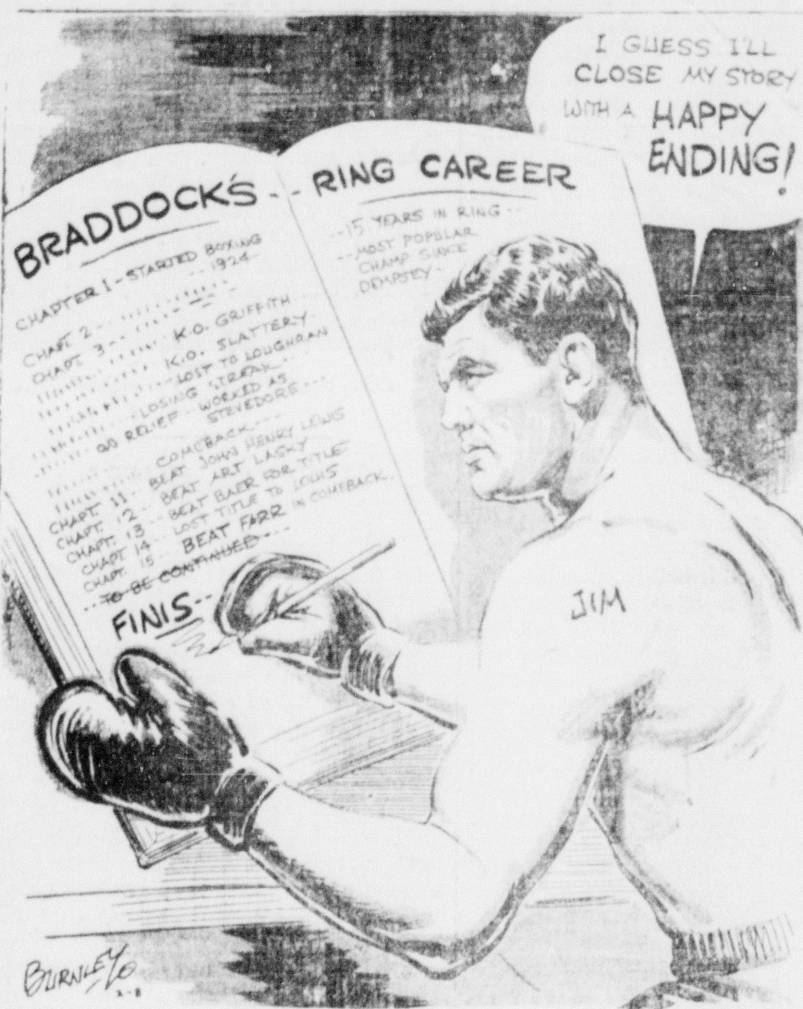 I GUESS I'LL
CLOSE MY STORY
WITH A HAPPY
ENDING!
BRADDOCK'S - - RING CAREER
CHAPTER 1 - STARTED BOXING
- - 1924
CHAPT. 2
CHAPT. 3
K.O. GRIFFITH
K.O. SLATTERY
LOST TO LOUGHRAN
LOSING STREAK
ON RELIEF - WORKED AS
STEVEDORE - - -
COMEBACK
CHAPT. 11 - BEAT JOHN HENRY LEWIS
CHAPT. 12 - BEAT ART LASKY
CHAPT. 13 - BEAT BAER FOR TITLE
CHAPT. 14 - LOST TITLE TO LOUIS
CHAPT. 15 BEAT FARR IN COMEBACK.
- - TO BE CONTINUED - - -
FINIS - -
- - 15 YEARS IN RING - -
- - MOST POPULAR
CHAMP SINCE
DEMPSEY - -
JIM
BURNLEY
2-8